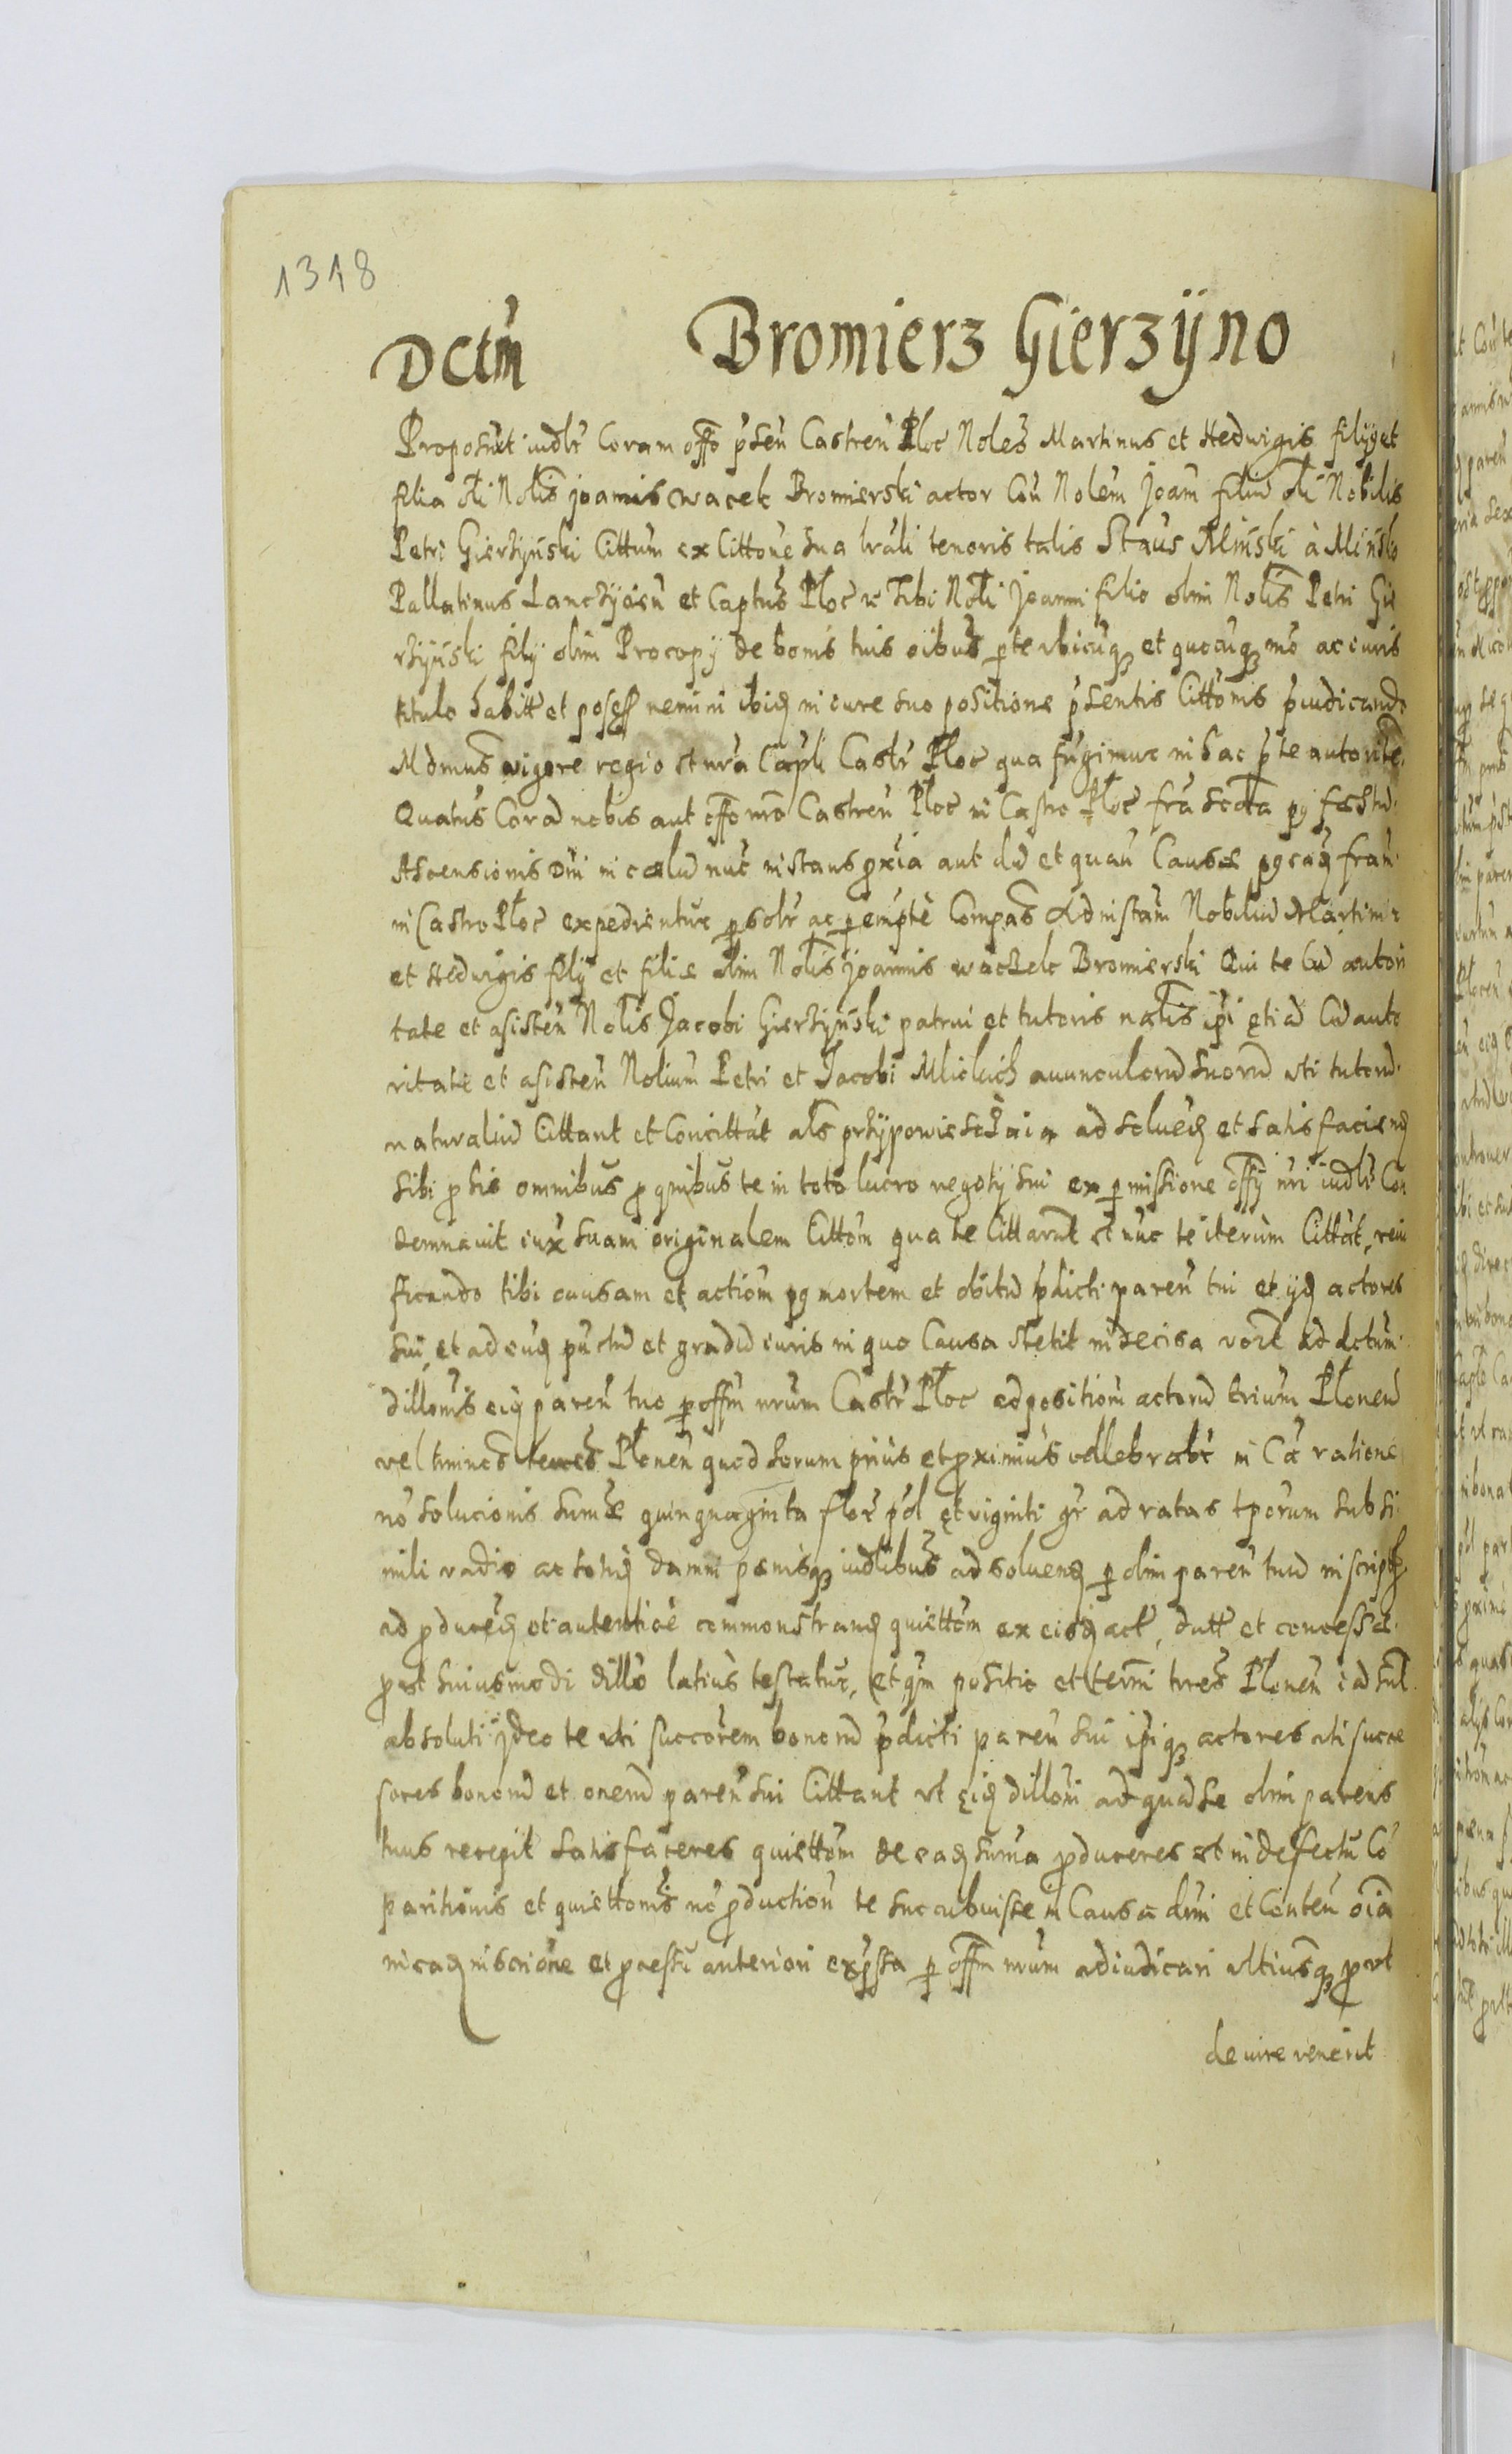 1318
Dctm̃ Bromierz Gierzÿno
Proposuit iudlr Coram offo pñsen Castren Ploc Noles Martinus et Hedwigis filÿ et
filia oli Nolis joannis wacek Bromierski actor Con Nolem Joañ filiũ oli Nobilis
Petri Gierzÿński Cittum ex Cittone sua lrali tenoris talis Staus Miński à Mińsko
Pallatinus Lanczÿcien et Captus Ploc tibi Noli Joanni filio olim Nolis Petri Gie
rzÿński filÿ olim Procopÿ de bonis tuis oibus pte vbicuq et quocuq mo ac iuris
titulo habitt et possess nemini ibid in iure suo positione pñsentis Cittonis piudicando
Mdmus vigore regio et nra Capli Castr Ploc qua fugimur in hac pte autorite.
Quatus Corã nobis aut offo nro Castren Ploc in Castro Ploc fra scda pq festũ
Ascensionis Dni in cœlũ nuc instans pxia aut dũ et quan Causæ fran
in Castro Ploc expedientur psolr ac pempte Compas Ad instam Nobiliũ Martini
et Hedwigis filÿ et filiæ olim Nolis joannis waczek Bromierski Qui te Cũ autori
tate et asisten Nolis Jacobi Gierzÿński patrui et tutoris nalis ipi etiã Cũ auto
ritate et asisten Nolium Petri et Jacobi Mlickich auunculorũ suorũ vti tutorũ
naturaliũ Cittant et Concittat als przÿpowiesczaia ad soluend et satisfaciend
sibi p his omnibus p qnibus te in toto lucro negotÿ sui ex pmissione offÿ nri iudlr Con
demnauit iux suam originalem Cittom qua te Cittarnt et nuc te iterum Cittat, reiu
ficando tibi causam et actiom pq mortem et obitũ pdicti paren tui et ÿd actores
sui, et ad eud puctũ et gradũ iuris in quo Causa stetit indecisa Ad actum
dillonis eid paren tuo p offm nrum Castr Ploc ad positiom actorũ trium Plonen
vel tminos Plonen quod horum prius et pximius cellebrabr in Ca ratione
no solucionis sumæ quinquaginta flor pol et viginti gr ad ratas tporum sub si
mili vadio ac totid damni penisq iudlibus ad soluend p olim paren tuũ inscript
ad pducend et autentice commonstrand quiettom ex eisd act, datt et concessæ
put huiusmodi dillo latius testatur, et qm positio et termi tres Plonen iã sut
absoluti ÿdeo te vti succorem bonorũ pdicti paren sui ipiq actores vti succe
sores bonorũ et onerũ paren sui Cittant vt eid dilloni ad quã se olim parens
tuus recepit satisfaceres quiettom de ead suma pduceres et in defectu Co
paritionis et quiettonis no pduction te succubuisse in Causa dmi et Conten oia
in ead inscrione et pcessu anteriori expssa p offm nrum adiudicari vltiusq put
de iure venerit